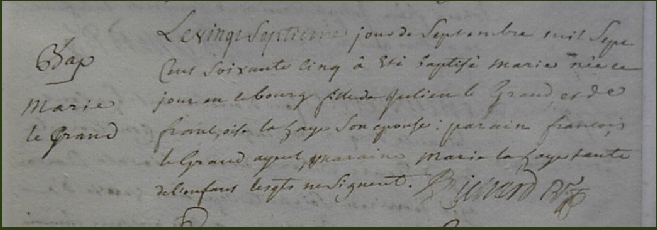 Bap
Marie
le Grand
Le vingt Septieme jour de Septembre mil Sept
Cent Soixante Cinq à été baptisé marie née ce
jour en le bourg fille de Julien le Grand et de
françoise la haye Son epouse: parain francois
le Grand ayeul maraine Marie la haye tante
de l'enfant lesqls ne Signent.